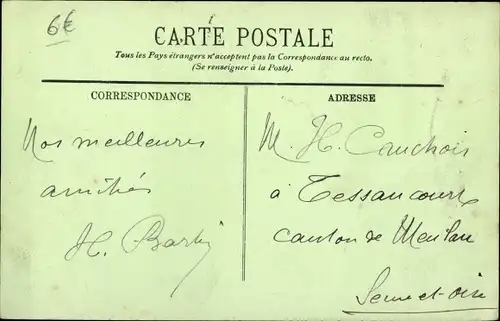 6€
CARTE POSTALE
Tous les Pays étrangers n'acceptent pas la Correspondance au recto.
(Se renseigner à la Poste).
CORRESPONDANCE
Nos meilleures
amitiés
ADRESSE
M. H. Cauchois
à Tessancourt
canton de Meulan
Seine et oise